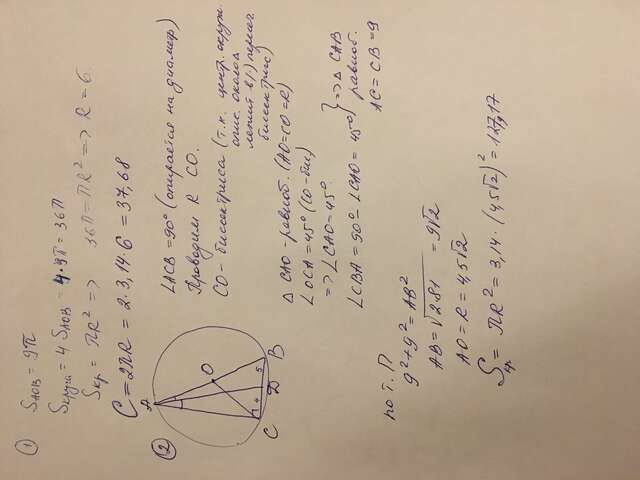 1
S AOB = 9π
S круга = 4 S AOB = 4·9π = 36π
S кр. = πR² => 36π = πR² => R = 6.
C = 2πR = 2·3,14·6 = 37,68
2
A
O
B
C
D
4
5
∠ACB = 90° (опирается на диаметр)
Проводим R CO.
CO - биссектриса (т.к. центр окруж.
опис. около Δ
лежит в () перес.
биссектрис)
Δ CAO - равноб. (AO=CO=R)
∠OCA = 45° (CO - бис)
=> ∠CAO = 45°
∠CBA = 90° - ∠CAO = 45°} => Δ CAB
равноб.
AC = CB = 9
по т. П.
9² + 9² = AB²
AB = √2·81 = 9√2
AO = R = 4,5√2
S кр. = πR² = 3,14·(4,5√2)² = 127,17